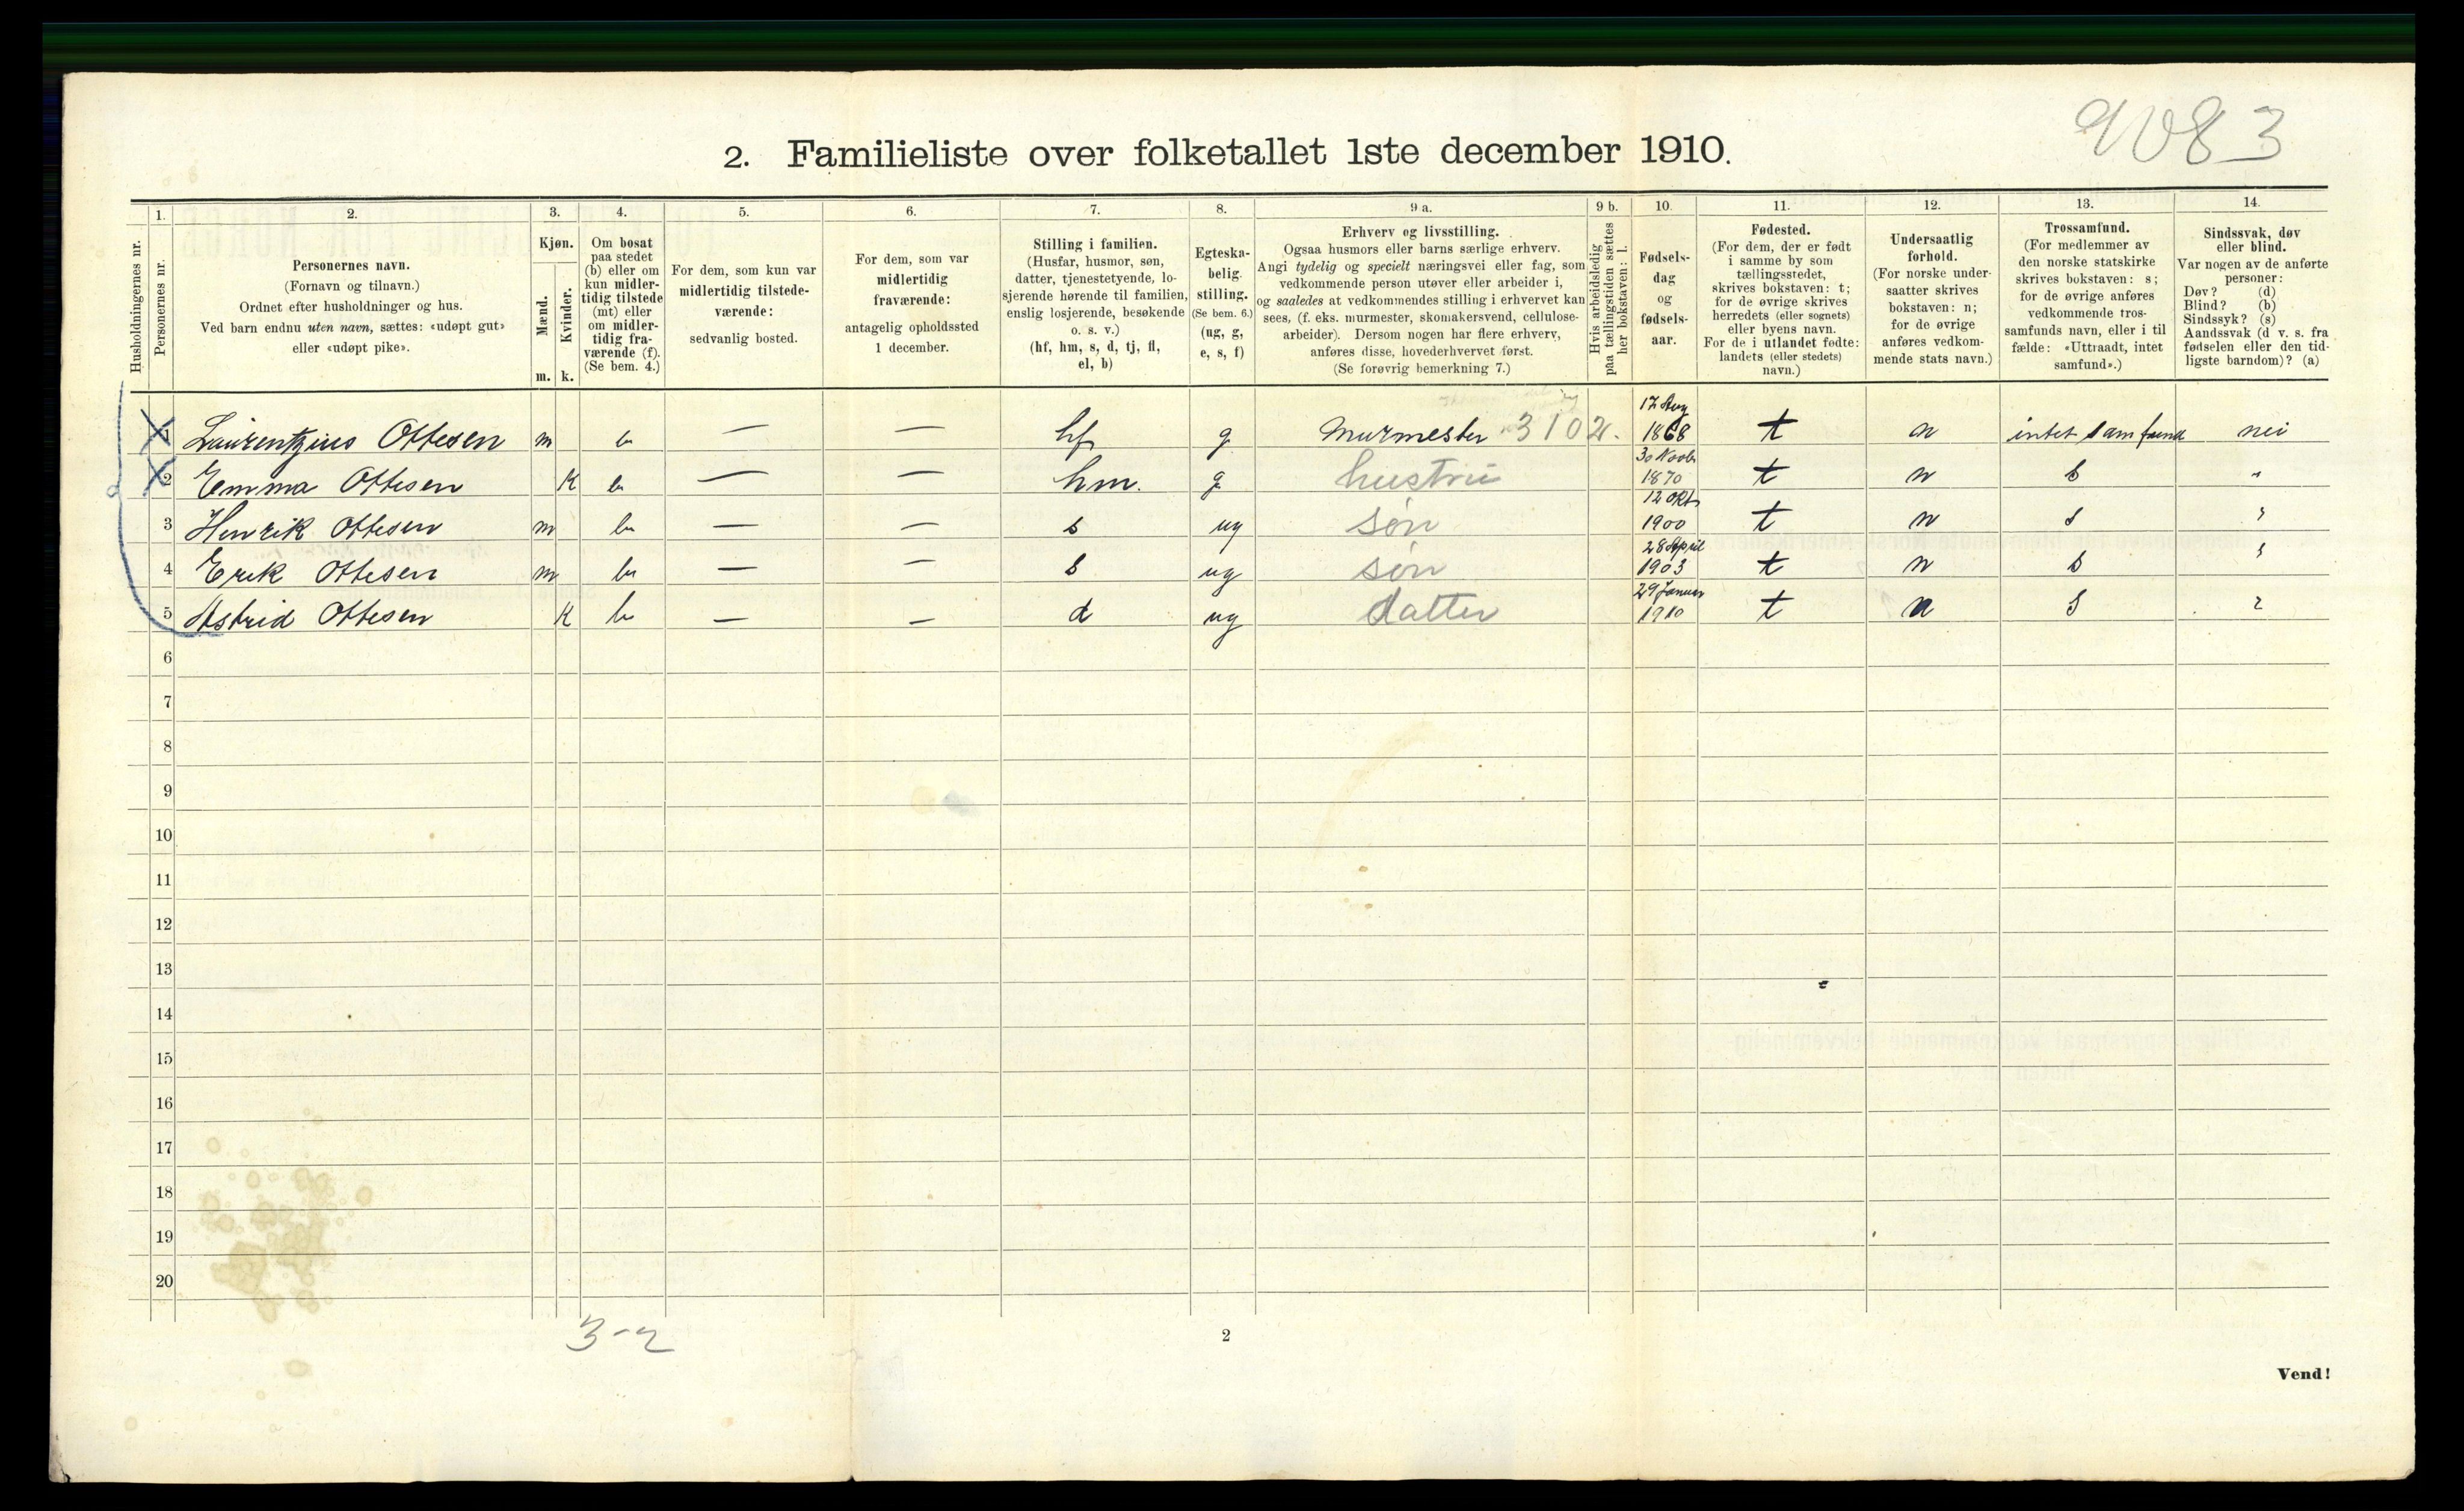 9083
2. Familieliste over folketallet 1ste december 1910.
1. 2. 3. 4. 5. 6. 7. 8. 9 a. 9 b. 10. 11. 12. 13. 14.
Husholdningernes nr.
Personernes nr.
Personernes navn.
(Fornavn og tilnavn.)
Ordnet efter husholdninger og hus.
Ved barn endnu uten navn, sættes: «udøpt gut»
eller «udøpt pike».
Kjøn.
Mænd.
Kvinder.
m. k.
Om bosat
paa stedet
(b) eller om
kun midler-
tidig tilstede
(mt) eller
om midler-
tidig fra-
værende (f).
(Se bem. 4.)
For dem, som kun var
midlertidig tilstede-
værende:
sedvanlig bosted.
For dem, som var
midlertidig
fraværende:
antagelig opholdssted
1 december.
Stilling i familien.
(Husfar, husmor, søn,
datter, tjenestetyende, lo-
sjerende hørende til familien,
enslig losjerende, besøkende
o. s. v.)
(hf, hm, s, d, tj, fl,
el, b)
Egteska-
belig
stilling.
(Se bem. 6.)
(ug, g,
e, s, f)
Erhverv og livsstilling.
Ogsaa husmors eller barns særlige erhverv.
Angi tydelig og specielt næringsvei eller fag, som
vedkommende person utøver eller arbeider i,
og saaledes at vedkommendes stilling i erhvervet kan
sees, (f. eks. murmester, skomakersvend, cellulose-
arbeider). Dersom nogen har flere erhverv,
anføres disse, hovederhvervet først.
(Se forøvrig bemerkning 7.)
Hvis arbeidsledig
paa tællingstiden sættes
her bokstaven: l.
Fødsels-
dag
og
fødsels-
aar.
Fødested.
(For dem, der er født
i samme by som
tællingsstedet,
skrives bokstaven: t;
for de øvrige skrives
herredets (eller sognets)
eller byens navn.
For de i utlandet fødte:
landets (eller stedets)
navn.)
Undersaatlig
forhold.
(For norske under-
saatter skrives
bokstaven: n;
for de øvrige
anføres vedkom-
mende stats navn.)
Trossamfund.
(For medlemmer av
den norske statskirke
skrives bokstaven: s;
for de øvrige anføres
vedkommende tros-
samfunds navn, eller i til
fælde: «Uttraadt, intet
samfund».)
Sindssvak, døv
eller blind.
Var nogen av de anførte
personer:
Døv? (d)
Blind? (b)
Sindssyk? (s)
Aandssvak (d v. s. fra
fødselen eller den tid-
ligste barndom)? (a)
1 Laurentzius Ottesen m b — — hf g Murmester 3102. 17 Aug 1868 t n intet samfund nei
2 Emma Ottesen K b — — hm. g hustru 30 Novbr 1870 t n s "
3 Henrik Ottesen m b — — s ug søn 12 Okt 1900 t n s "
4 Erik Ottesen m b — — s ug søn 28 April 1903 t n s "
5 Astrid Ottesen K b — — d ug datter 29 Januar 1910 t n s "
6
7
8
9
10
11
12
13
14
15
16
17
18
19
20
3-2
2
Vend!